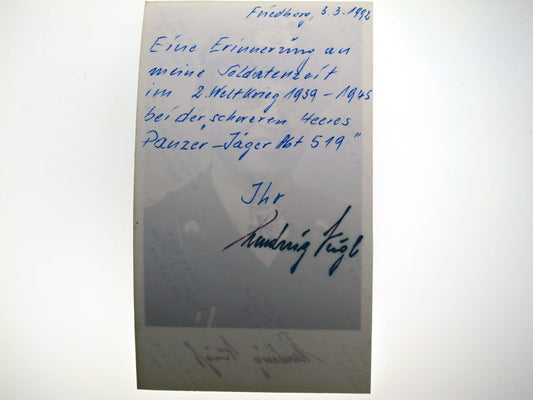 Friedberg, 3.3.1992
Eine Erinnerung an
meine Soldatenzeit
im 2. Weltkrieg 1939-1945
bei der "schweren Heeres
Panzer-Jäger Abt 519"
Ihr
Ludwig